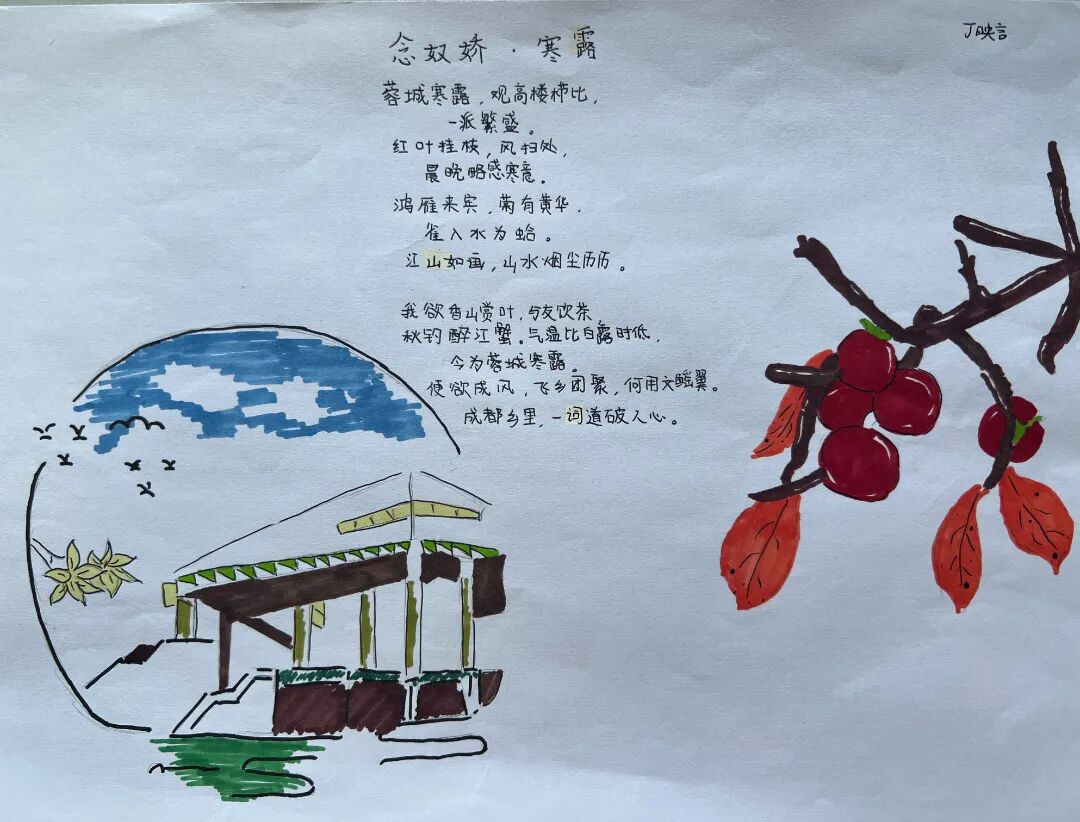 念奴娇·寒露
丁映言
蓉城寒露，观高楼栉比，
一派繁盛。
红叶挂枝，风扫处，
晨晚略感寒意。
鸿雁来宾，菊有黄华，
雀入水为蛤。
江山如画，山水烟尘历历。
我欲香山赏叶，与友饮茶
秋钓醉江蟹。气温比白露时低，
今为蓉城寒露。
便欲成风，飞乡团聚，何用文翼。
成都乡里，一词道破人心。